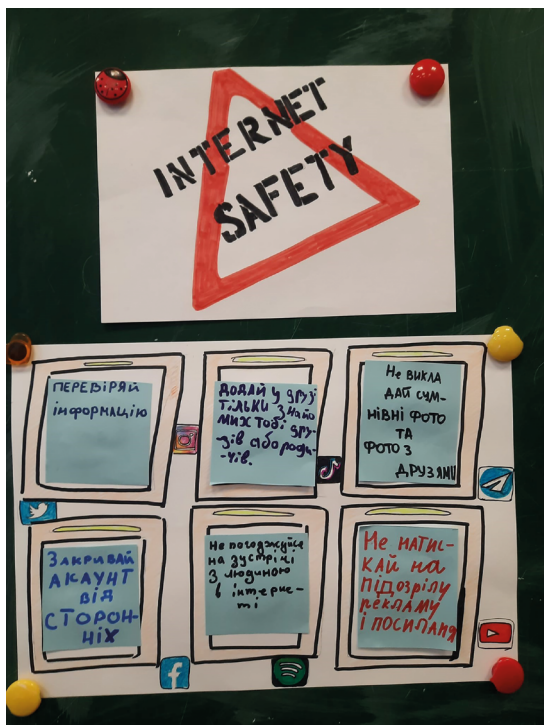 INTERNET
SAFETY
ПЕРЕВІРЯЙ
інформацію
Додай у друзі
тільки знайо
мих тобі дру-
зів або роди-
чів.
Не викла
дай сум-
нівні фото
та
фото з
друзями
Закривай
акаунт
від
сторон-
ніх
Не погоджуйся
на зустрічі
з людиною
в інтерне-
ті
Не натис-
кай на
підозрілу
рекламу
і посилання